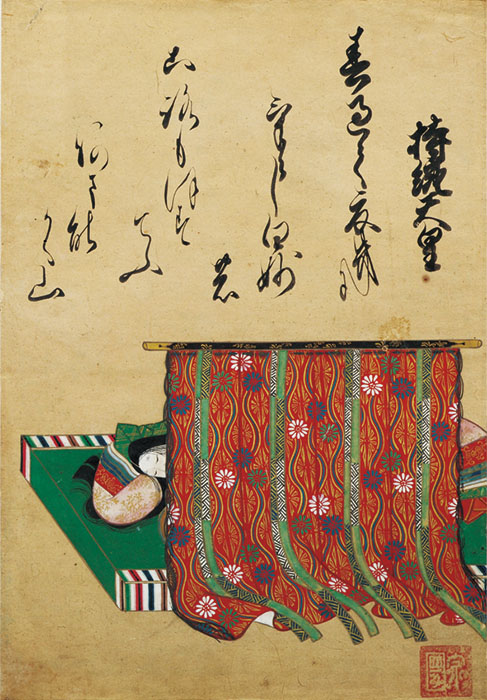 持統天皇
春過て夏来に
けらし白妙
の
ころもほす
てふ
あまの
かく山